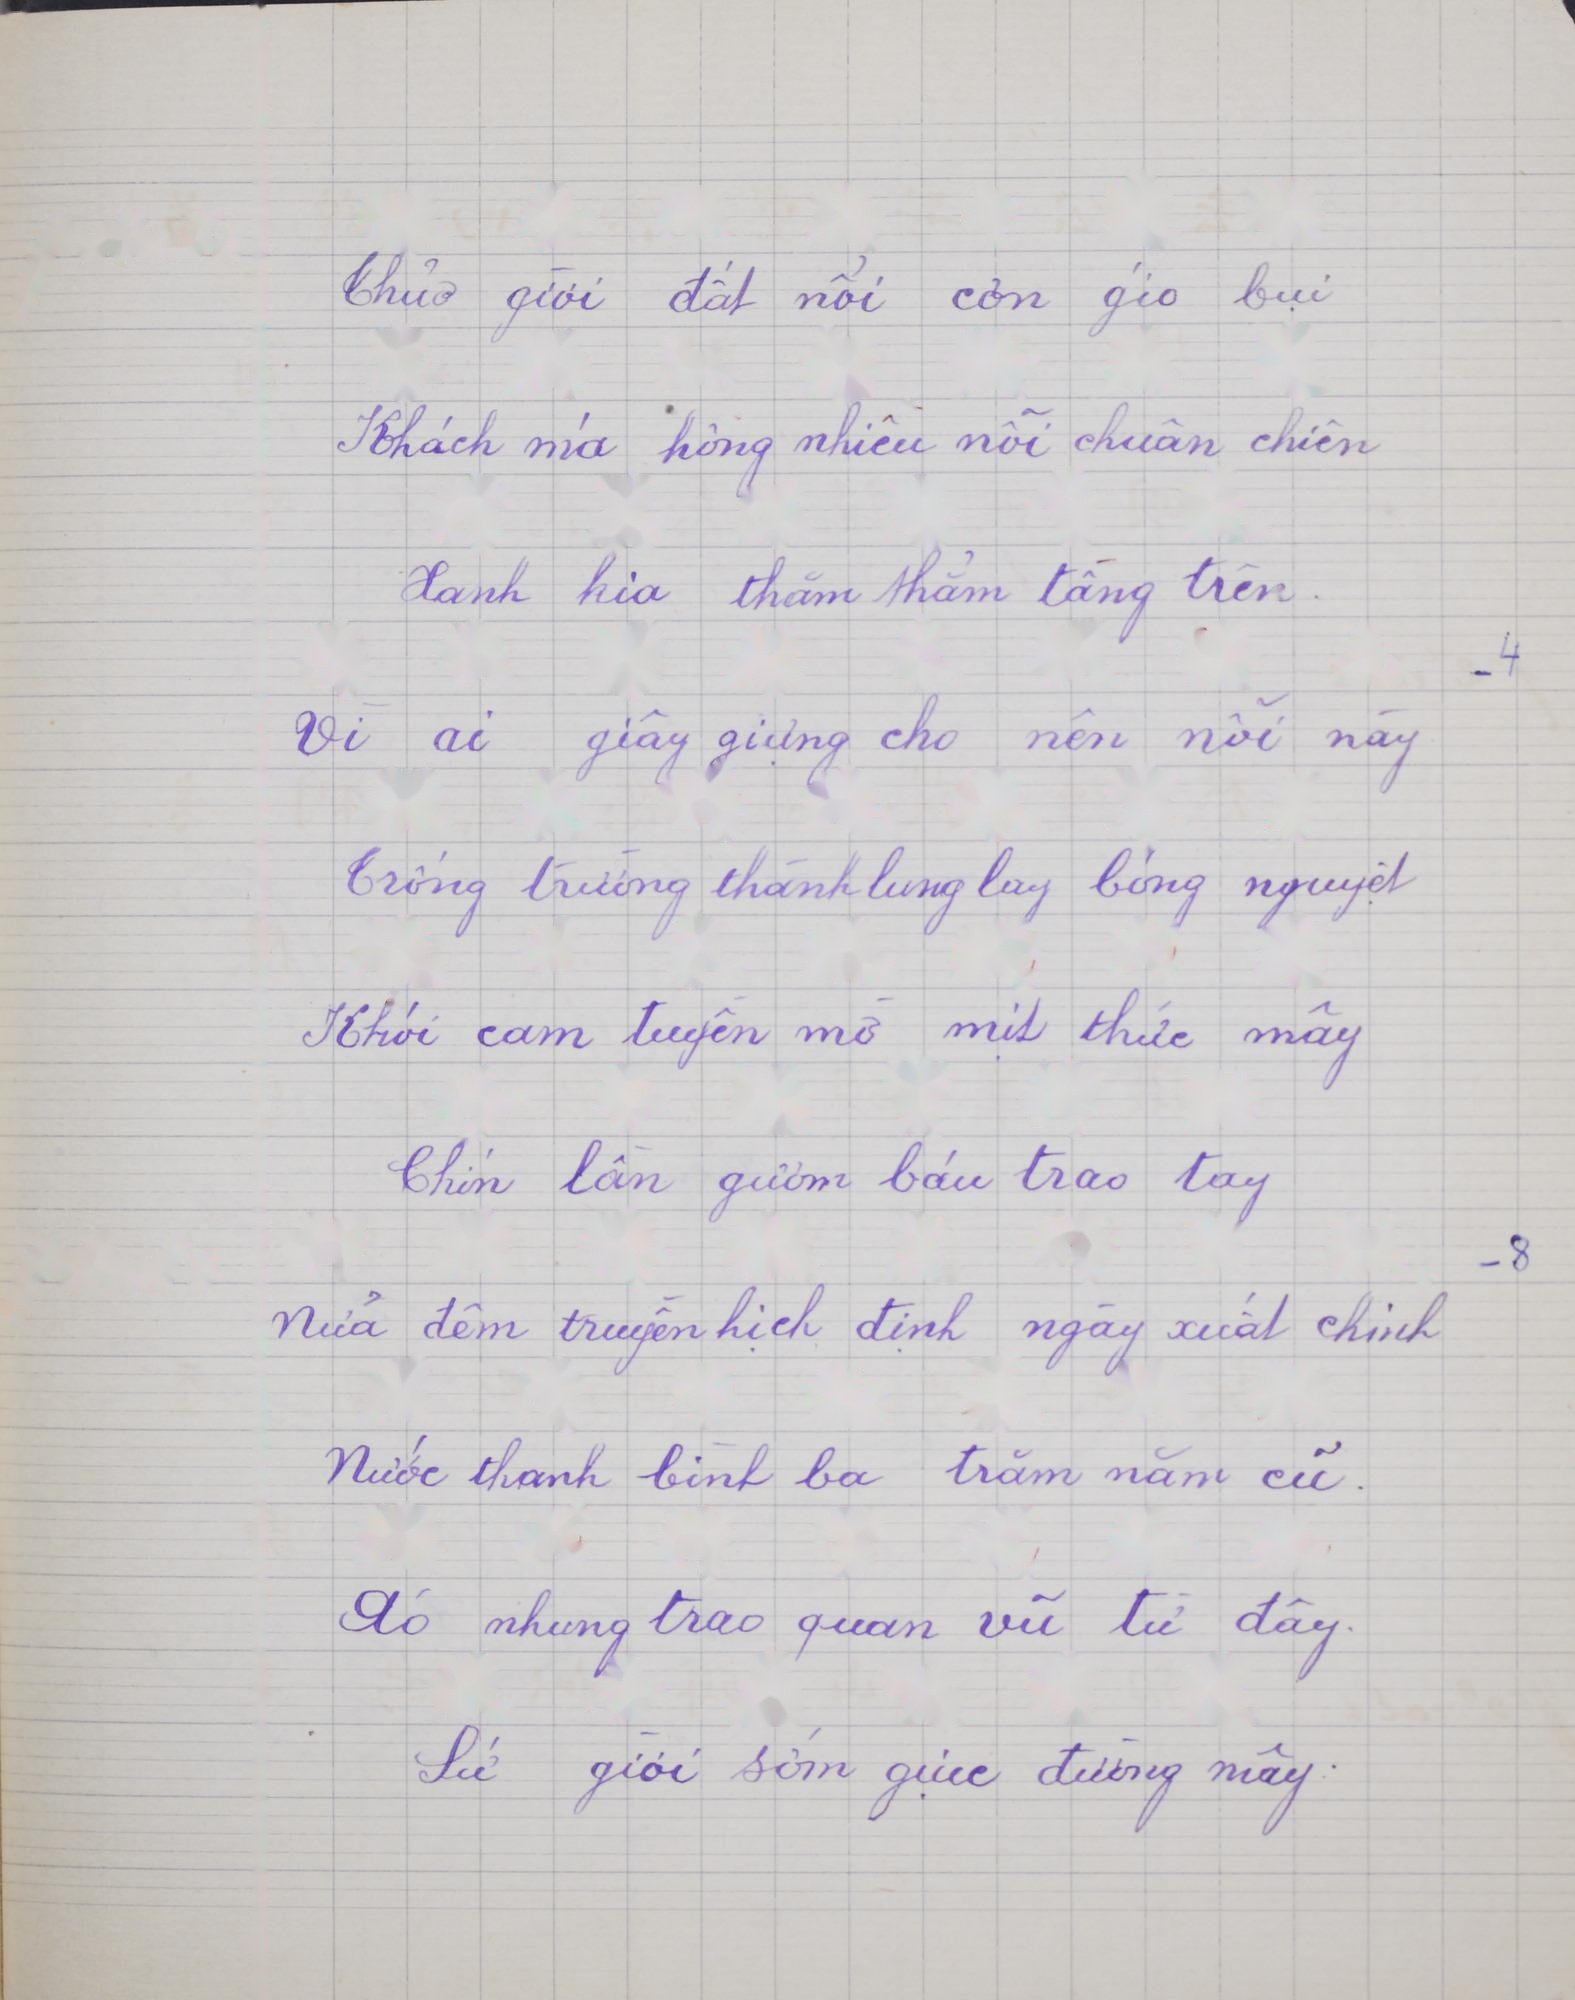 Thủơ giời đất nổi cơn gió bụi
Khách má hồng nhiều nỗi chuân chiên
Xanh kia thăm thẳm tầng trên.
-4
Vì ai giây giựng cho nên nỗi này
Trống trường thành lung lay bóng nguyệt
Khói cam tuyền mờ mịt thức mây
Chín lần gươm báu trao tay
-8
Nửa đêm truyền hịch định ngày xuất chinh
Nước thanh bình ba trăm năm cũ.
Áo nhung trao quan vũ từ đây.
Sứ giời sớm giục đường mây: